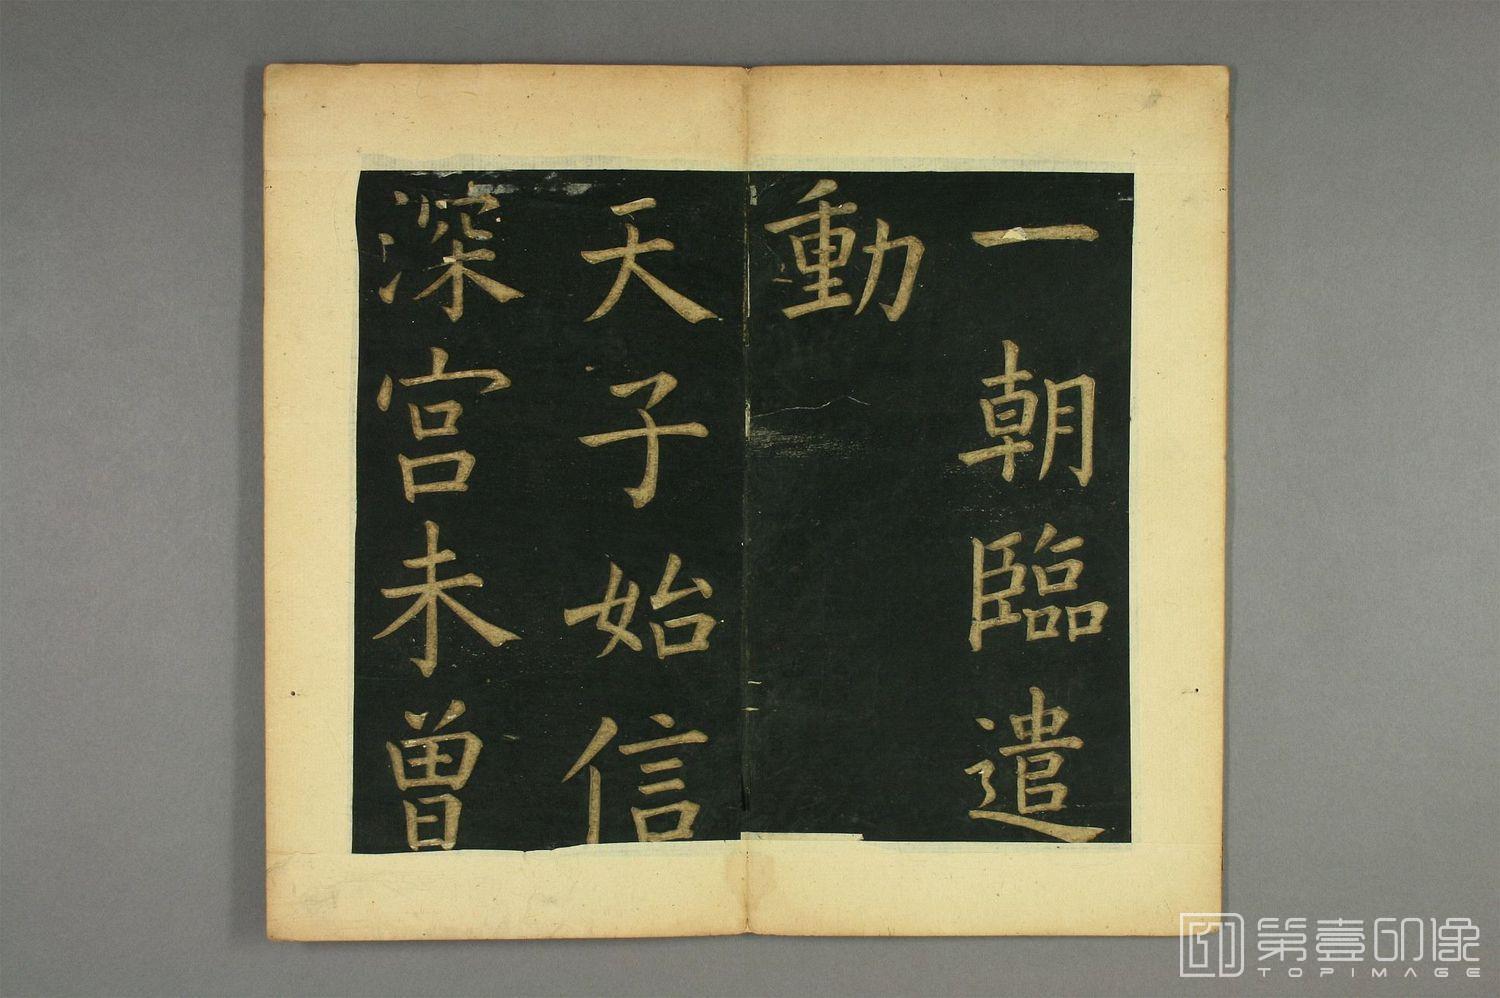 一朝臨遣
動
天子始信
深宮未曾
第壹印像
TOPIMAGE